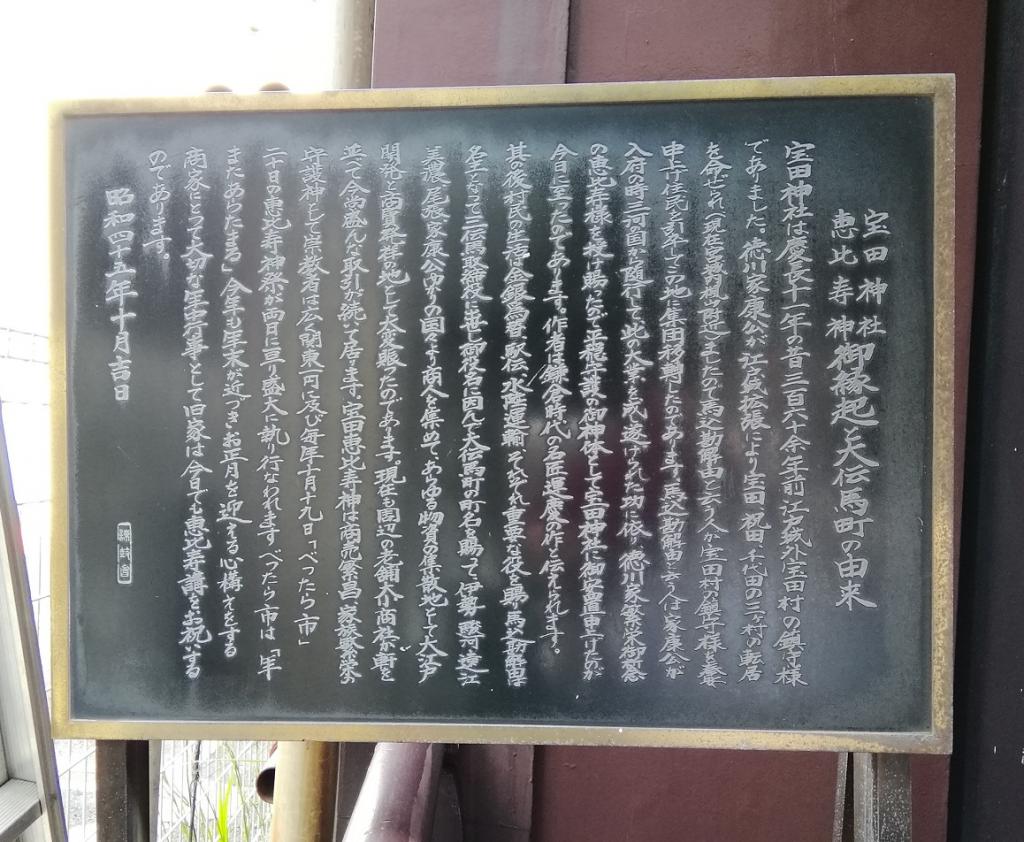 宝田神社
恵比寿神 御縁起と大伝馬町の由来
宝田神社は慶長十一年の昔三百六十余年前江戸城外宝田村の鎮守様
でありました。徳川家康公が江戸城拡張により宝田、祝田、千代田の三ヶ村の転居
を命ぜられ(現在宮城内楓山附近)ましたので馬込勘解由と云う人が宝田村の鎮守様を奉安
申上げ住民を引率してこの地に集団移動したのであります。馬込勘解由と云う人は家康公が
入府の時三河の国から随行して此の大業を成し遂げられた功に依り、徳川家繁栄御祈念
の恵比寿様を授け賜ったので平穏守護の御神体として宝田神社に御安置申上げたのが
今日に至ったのであります。作者は鎌倉時代の名匠運慶の作と伝えられます。
其の後村民の生活は金銀為替、駅伝、水陸運輸、それぞれ重要な役を賜り馬込勘解由は
名主となって三伝馬取締役に出世し御役名に因んで大伝馬町の町名を賜って伊勢、駿河、遠江
美濃、尾張、家康公ゆかりの国々より商人を集めて、あらゆる物資の集散地として大江戸
開発と商業発祥の地として大変賑ったのであります。現在も周辺の老舗大小商社が軒を
並べて今尚盛んな取引が続いて居ます。宝田恵比寿神は商売繁昌、家族繁栄の
守護神として崇敬者は広く関東一円に及び毎年十月十九日「べったら市」
二十日の恵比寿神祭が両日に亘り盛大に執り行なわれます べったら市は「年
またあらたまる」今年も年末が近づきお正月を迎える心構えをする
商家にとって大切な年中行事として旧家は今日でも恵比寿講をお祝いする
のであります。
昭和四十五年十月吉日